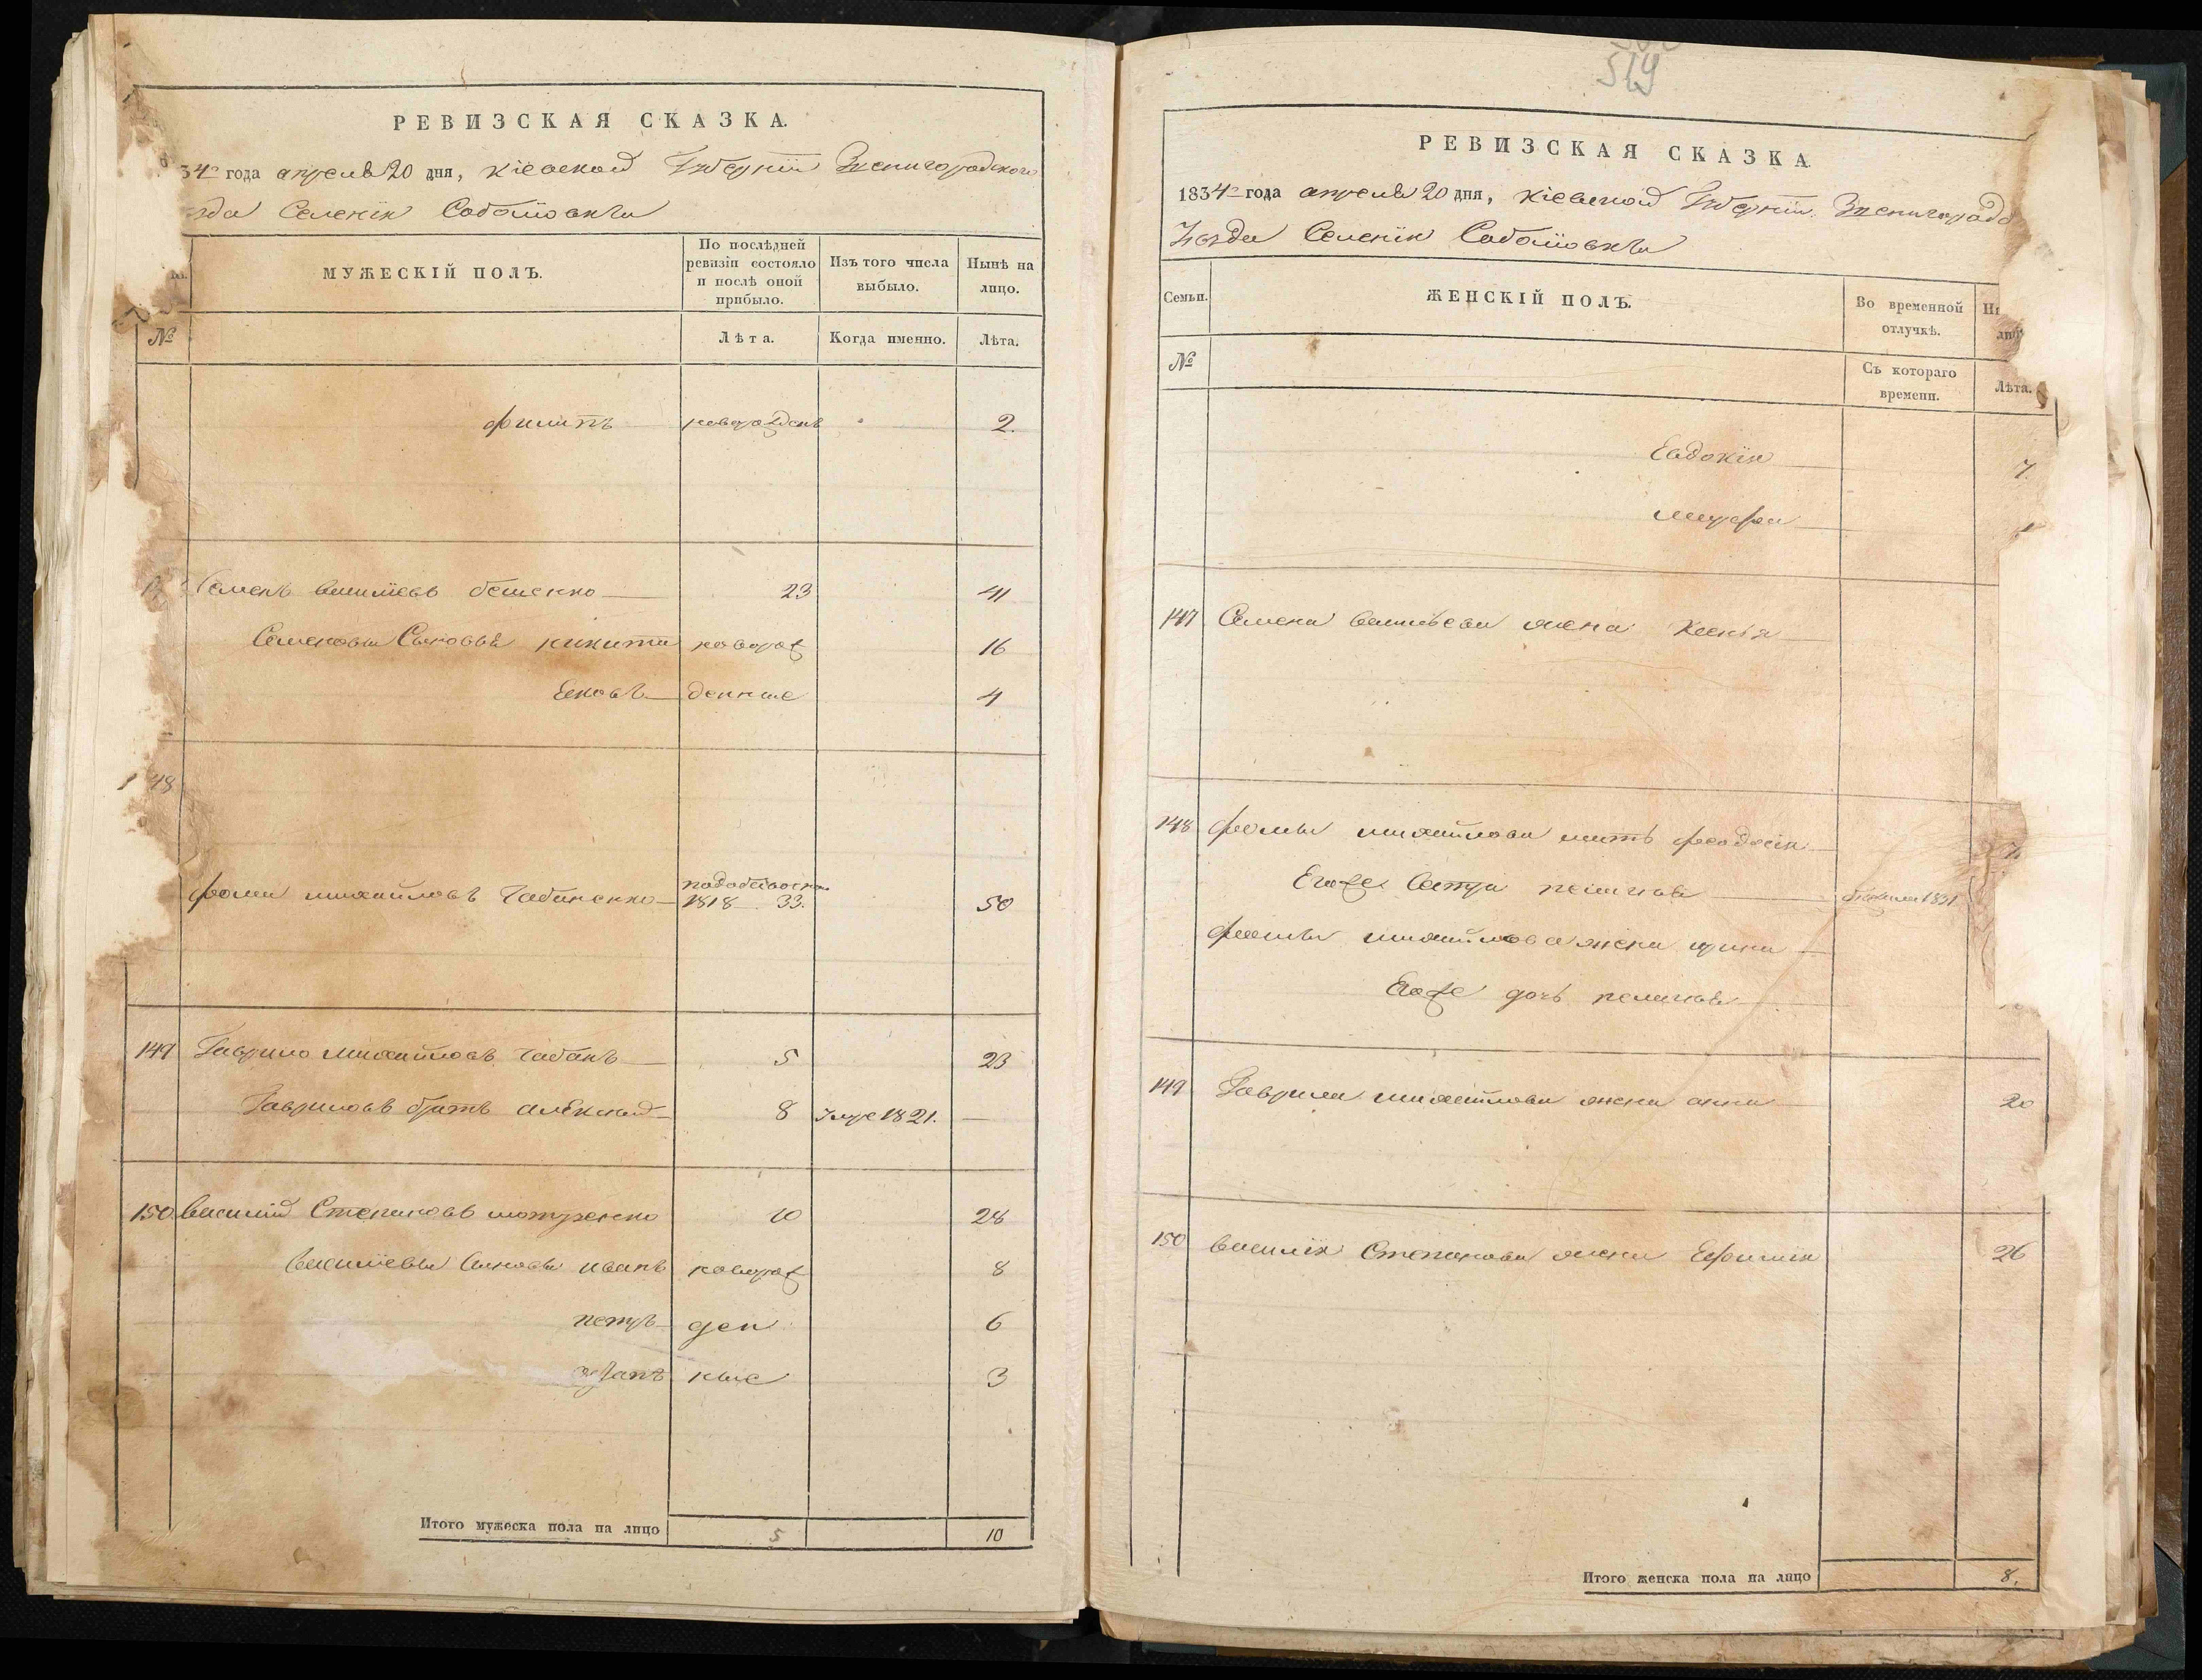 РЕВИЗСКАЯ СКАЗКА.
34го года апреля 20 дня, Кіевской Губерніи Звенигородского
зда Селенія
МУЖЕСКІЙ ПОЛЪ.
По послѣдней ревизіи состояло и послѣ оной прибыло.
Изъ того числа выбыло.
Нынѣ на лицо.
№
Лѣта.
Когда именно.
Лѣта.
филипъ новорожденъ 2.
Семенъ 23 41
Семеновы Сыновья никита новорож 16
Яковъ денные 4
148
фома михайловъ 1818 33. 50
149 Гаврило михайловъ чабанъ 5 23
Гавриловъ братъ 8 Умре 1821. —
150. василій Степановъ 10 28
Василіевы Сыновья иванъ новорож 8
петръ ден 6
ные 3
Итого мужеска пола на лицо 5 10
519
РЕВИЗСКАЯ СКАЗКА
1834го года апреля 20 дня, Кіевской Губерніи Звенигородс
уезда Селенія
Семьи.
ЖЕНСКІЙ ПОЛЪ.
Во временной отлучкѣ.
№
Съ котораго времени.
Лѣта.
Евдокія 7.
147 Семена жена Ксенья
148 фомы михайлова мать феодосія
Егоже Сестра 1831
фомы михайлова жена ирина
Егоже дочь
149 Гаврила михайлова жена анна 20
150 василія Степанова жена Ефимія 26
Итого женска пола на лицо 8.